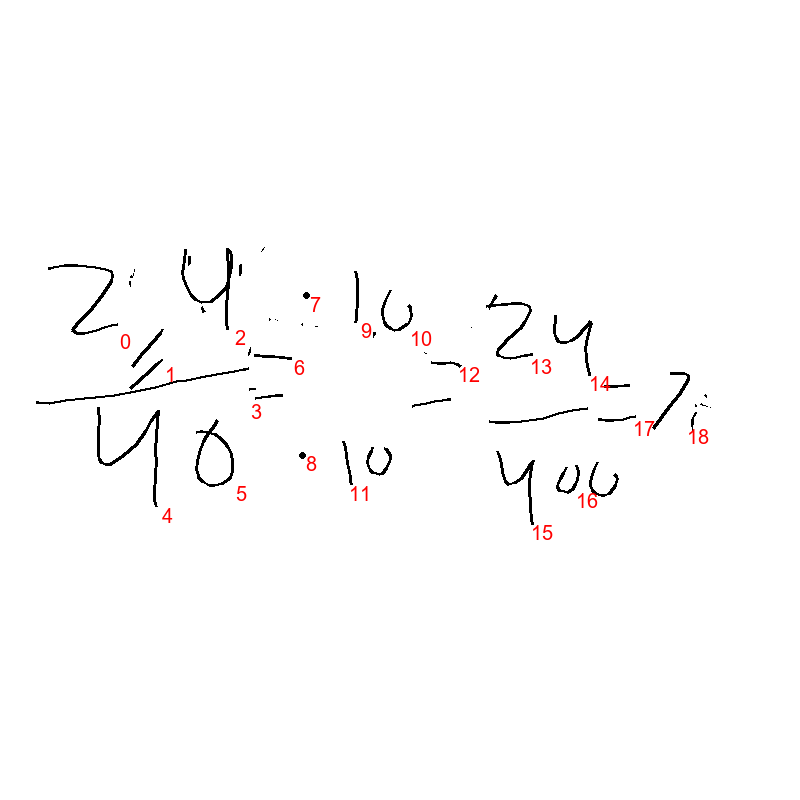 2,4 · 10 24
— = — = — = 7
40 · 10 400
0 1 2 3 4 5 6 7 8 9 10 11 12 13 14 15 16 17 18